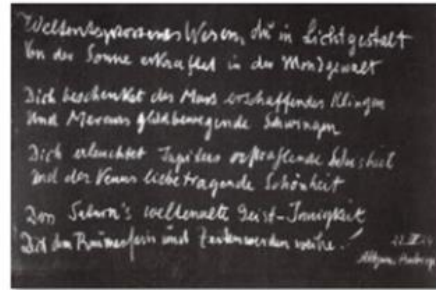 Weltentsprossenes Wesen, du in Lichtgestalt
Von der Sonne erkraftet in der Mondgewalt
Dich beschenket des Mars erschaffendes Klingen
Und Mercurs gliedbewegende Schwingen
Dich erleuchtet Jupiters erstrahlende Weisheit
Und der Venus liebetragende Schönheit
Dass Saturn's weltenalte Geist-Innigkeit
Dich dem Raumessein und Zeitenwerden weihe!